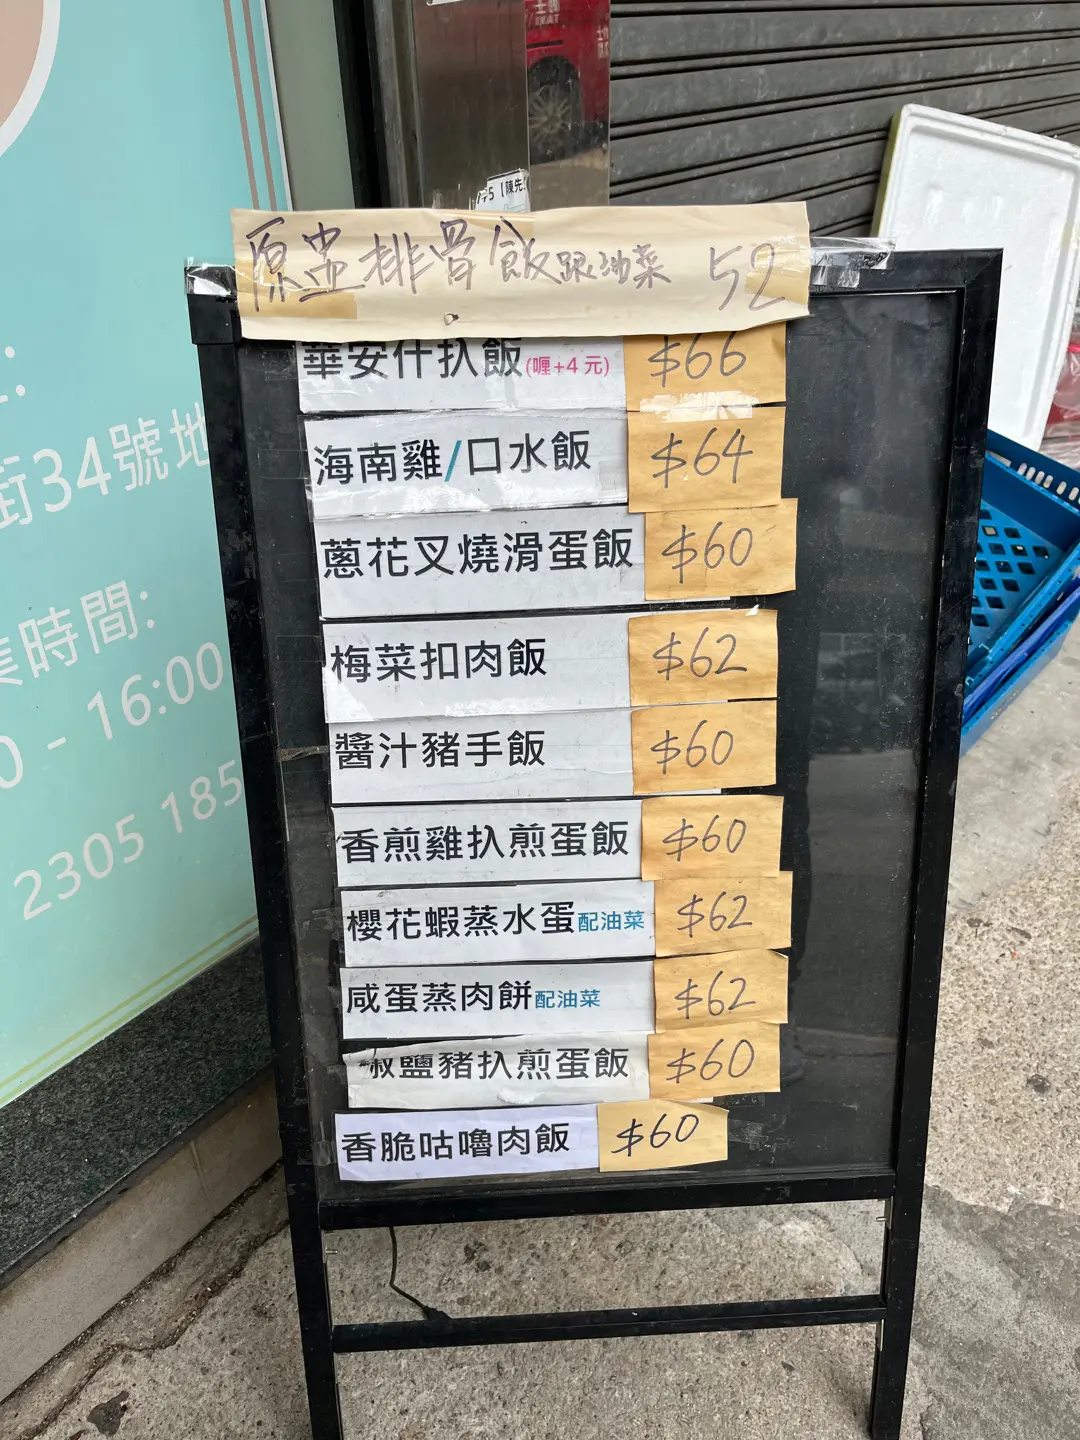 原盅排骨飯跟油菜 52
華安什扒飯(喱+4 元) $66
海南雞/口水飯 $64
蔥花叉燒滑蛋飯 $60
梅菜扣肉飯 $62
醬汁豬手飯 $60
香煎雞扒煎蛋飯 $60
櫻花蝦蒸水蛋配油菜 $62
咸蛋蒸肉餅配油菜 $62
椒鹽豬扒煎蛋飯 $60
香脆咕嚕肉飯 $60
街34號地
業時間:
0 - 16:00
2305 185